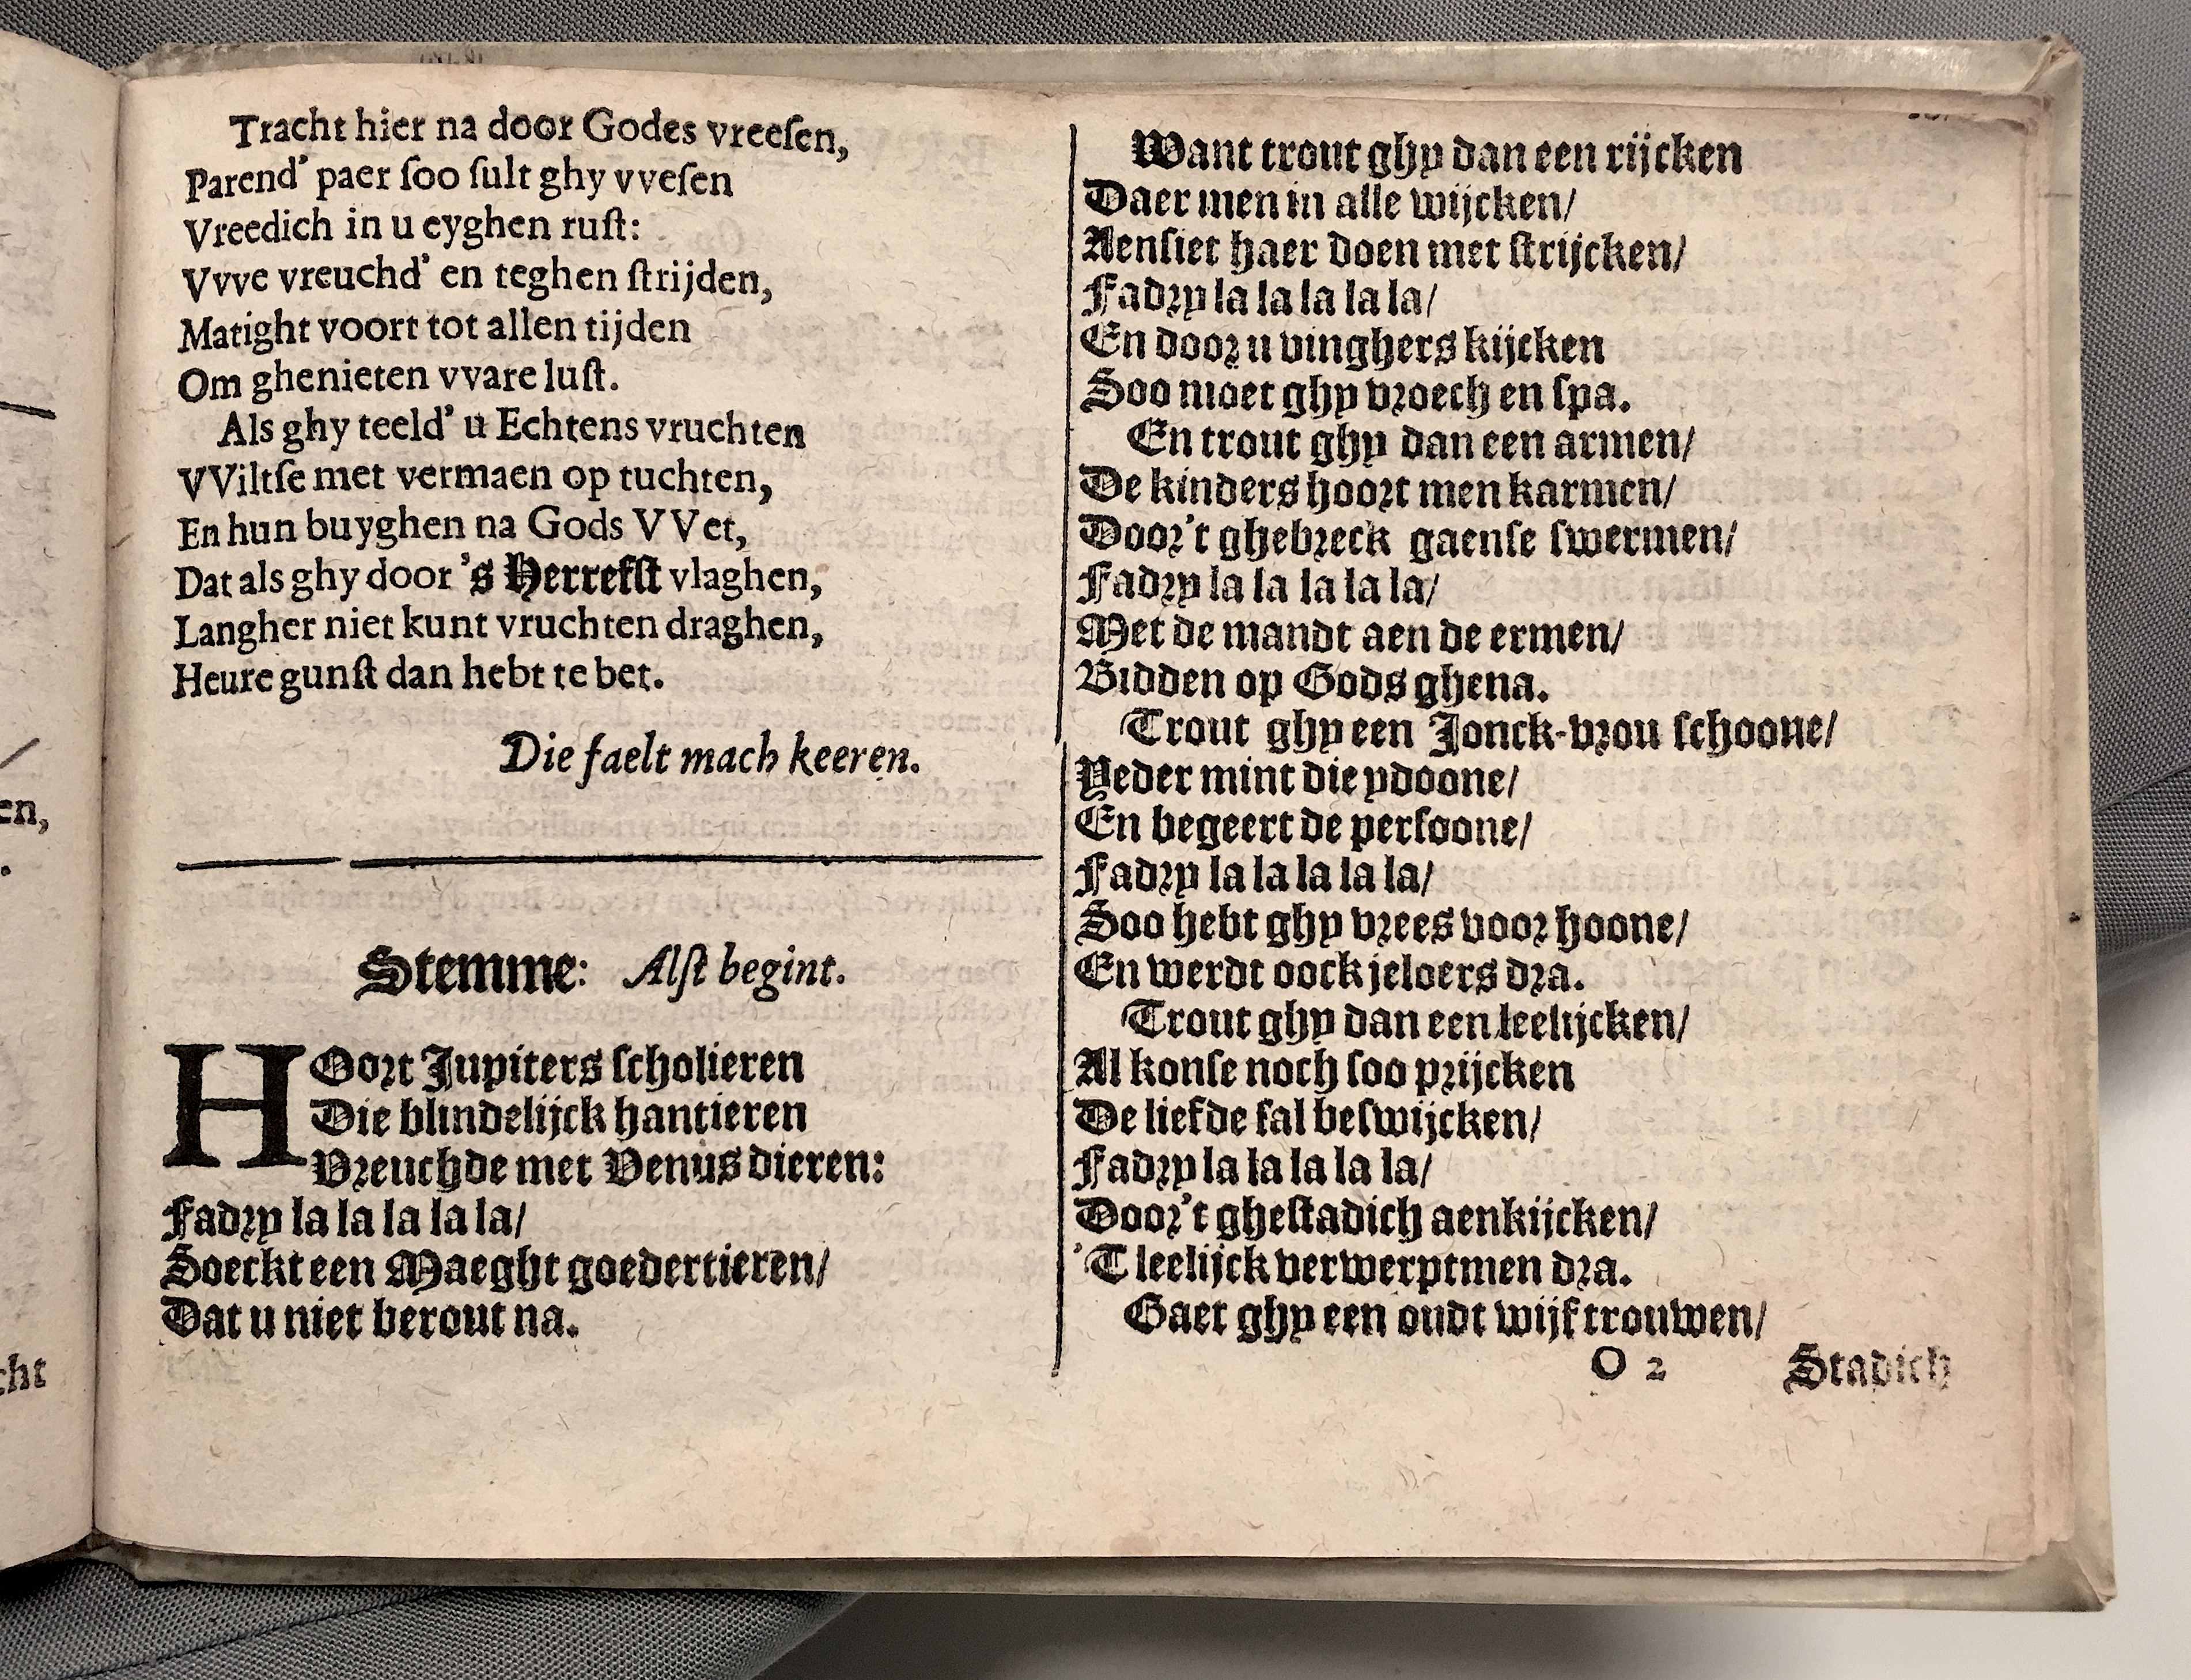 Tracht hier na door Godes vreeſen,
Parend’ paer ſoo ſult ghy vveſen
Vreedich in u eyghen ruſt:
Vvve vreuchd’ en teghen ſtrijden,
Matight voort tot allen tijden
Om ghenieten vvare luſt.
Als ghy teeld’ u Echtens vruchten
VViltſe met vermaen op tuchten,
En hun buyghen na Gods VVet,
Dat als ghy door ’s Herrefſt vlaghen,
Langher niet kunt vruchten draghen,
Heure gunſt dan hebt te bet.
Die faelt mach keeren.
Stemme: Alſt begint.
HOort Jupiters ſcholieren
Die blindelijck hantieren
Vreuchde met Venus dieren:
Fadry la la la la la/
Soeckt een Maeght goedertieren/
Dat u niet berout na.
Want trout ghy dan een rijcken
Daer men in alle wijcken/
Aenſiet haer doen met ſtrijcken/
Fadry la la la la la/
En door u vinghers kijcken
Soo moet ghy vroech en ſpa.
En trout ghy dan een armen/
De kinders hoort men karmen/
Door’t ghebreck gaenſe ſwermen/
Fadry la la la la la/
Met de mandt aen de ermen/
Bidden op Gods ghena.
Trout ghy een Jonck-vrou ſchoone/
Yeder mint die ydoone/
En begeert de perſoone/
Fadry la la la la la/
Soo hebt ghy vrees voor hoone/
En werdt oock jeloers dra.
Trout ghy dan een leelijcken/
Al konſe noch ſoo prijcken
De liefde ſal beſwijcken/
Fadry la la la la la/
Door’t gheſtadich aenkijcken/
’T leelijck verwerptmen dra.
Gaet ghy een oudt wijf trouwen/
O 2 Stadich
en,
.
cht